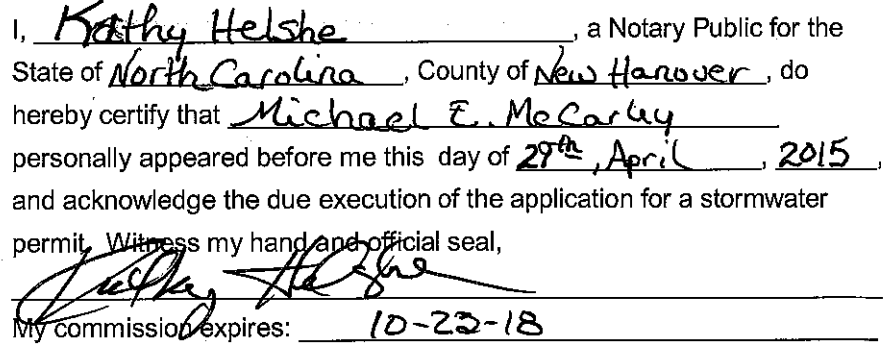 I, Kathy Helshe, a Notary Public for the
State of North Carolina, County of New Hanover, do
hereby certify that Michael E. McCarley
personally appeared before me this day of 29th, April, 2015,
and acknowledge the due execution of the application for a stormwater
permit. Witness my hand and official seal,
Kathy Helshe
My commission expires: 10-23-18